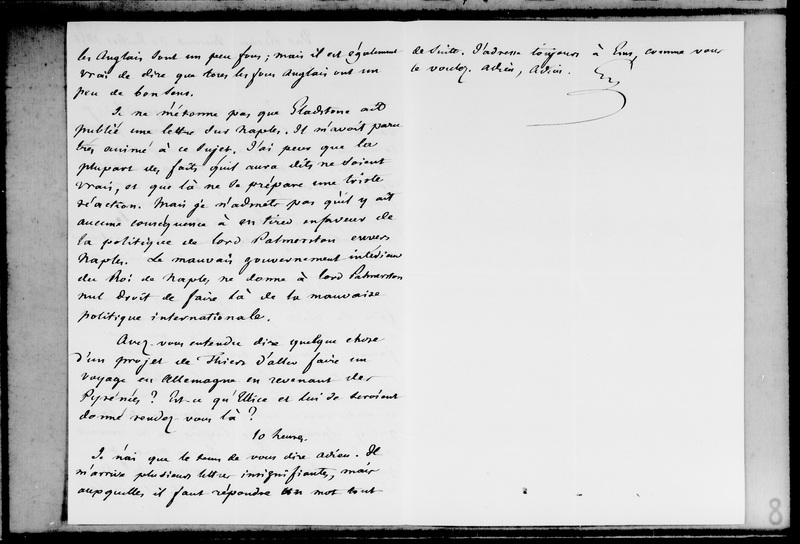 les Anglais sont un peu fous ; mais il est également
vrai de dire que tous les fous Anglais ont un
peu de bon sens.
Je ne m'étonne pas que Gladstone ait
publié une lettre sur Naples. Il m'avoit paru
très animé à ce sujet. J'ai peur que la
plupart des faits qu'il aura dits ne soient
vrais, et que là ne se prépare une triste
réaction. Mais je n'admets pas qu'il y ait
aucune conséquence à en tirer en faveur de
la politique de lord Palmerston envers
Naples. Le mauvais gouvernement intérieur
du Roi de Naples ne donne à lord Palmerston
nul droit de faire là de la mauvaise
politique internationale.
Avez-vous entendu dire quelque chose
d'un projet de Thiers d'aller faire un
voyage en Allemagne en revenant des
Pyrénées ? Est-ce qu'Ellice et lui se seroient
donné rendez-vous là ?
10 heures.
Je n'ai que le tems de vous dire adieu. Il
m'arrive plusieurs lettres insignifiantes, mais
auxquelles il faut répondre un mot tout
de suite. J'adresse toujours à Ems, comme vous
le voulez. Adieu, Adieu.
8